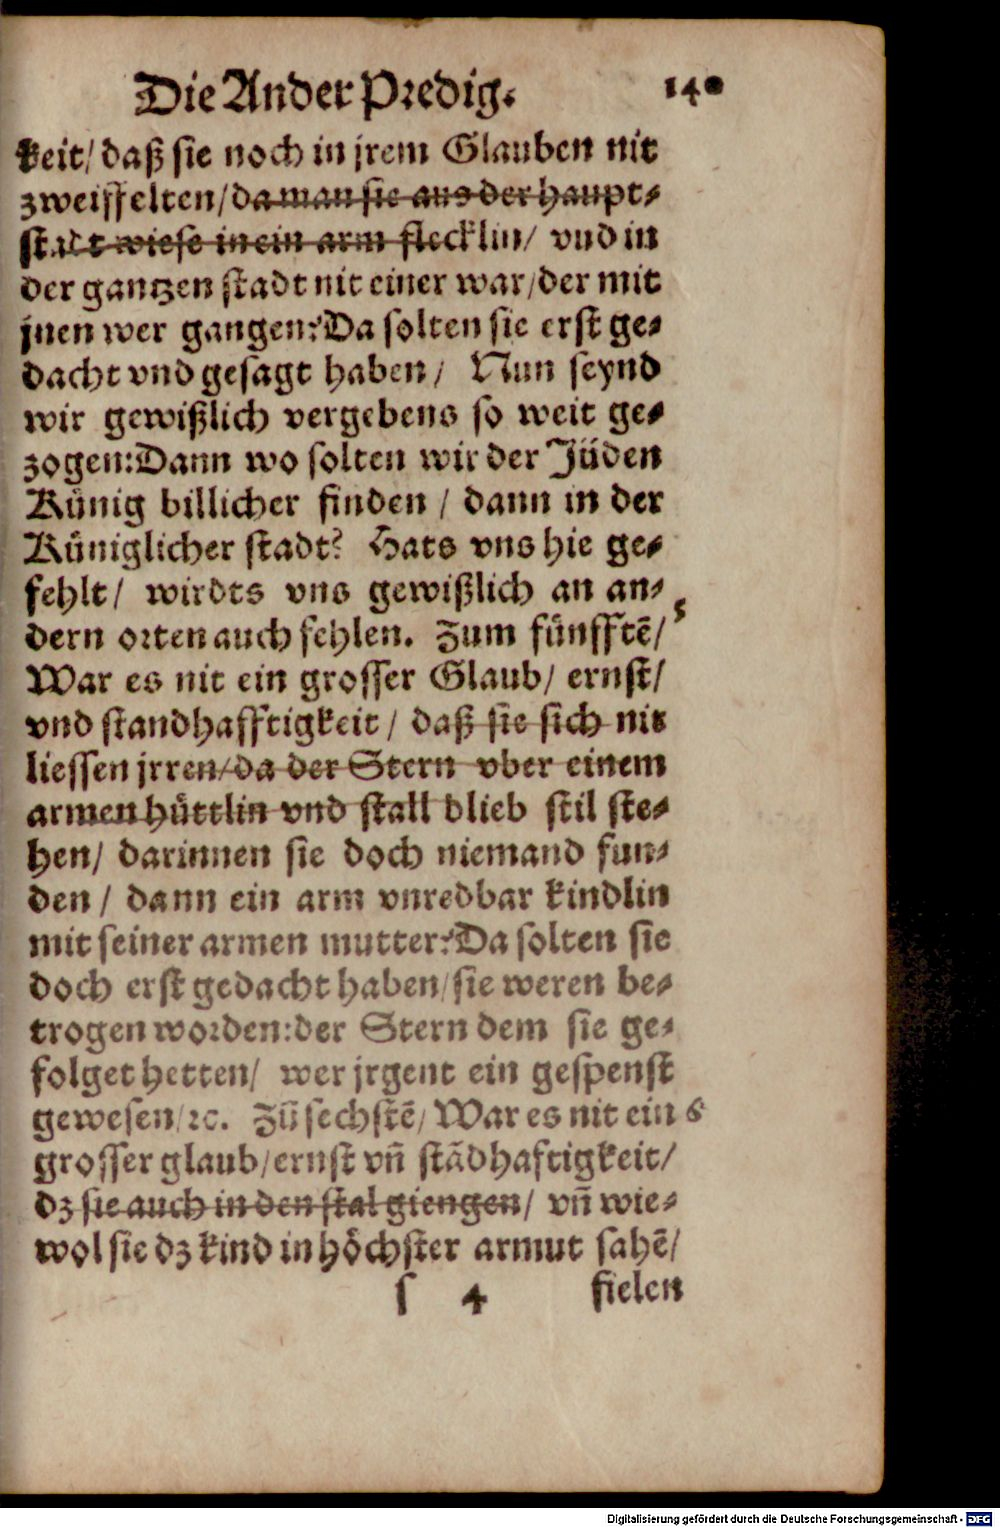 Die Ander Predig. 140
keit/ daß sie noch in jrem Glauben nit
zweiffelten/ da man sie aus der haupt⸗
stadt wiese in ein arm flecklin/ vnd in
der gantzen stadt nit einer war/ der mit
jnen wer gangen? Da solten sie erst ge⸗
dacht vnd gesagt haben/ Nun seynd
wir gewißlich vergebens so weit ge⸗
zogen: Dann wo solten wir der Jüden
Künig billicher finden / dann in der
Küniglicher stadt? Hats vns hie ge⸗
fehlt/ wirdts vns gewißlich an an⸗
dern orten auch fehlen. Zum fünfftē/ 5
War es nit ein grosser Glaub/ ernst/
vnd standhafftigkeit/ daß sie sich nit
liessen jrren/ da der Stern vber einem
armen hüttlin vnd stall blieb stil ste⸗
hen/ darinnen sie doch niemand fun⸗
den / dann ein arm vnredbar kindlin
mit seiner armen mutter? Da solten sie
doch erst gedacht haben/ sie weren be⸗
trogen worden: der Stern dem sie ge⸗
folget hetten/ wer jrgent ein gespenst
gewesen/ ꝛc. Zū sechstē/ War es nit ein 6
grosser glaub/ ernst vñ stādhaftigkeit/
dz sie auch in den stal giengen/ vñ wie⸗
wol sie dz kind in höchster armut sahē/
s 4 fielen
Digitalisierung gefördert durch die Deutsche Forschungsgemeinschaft - DFG